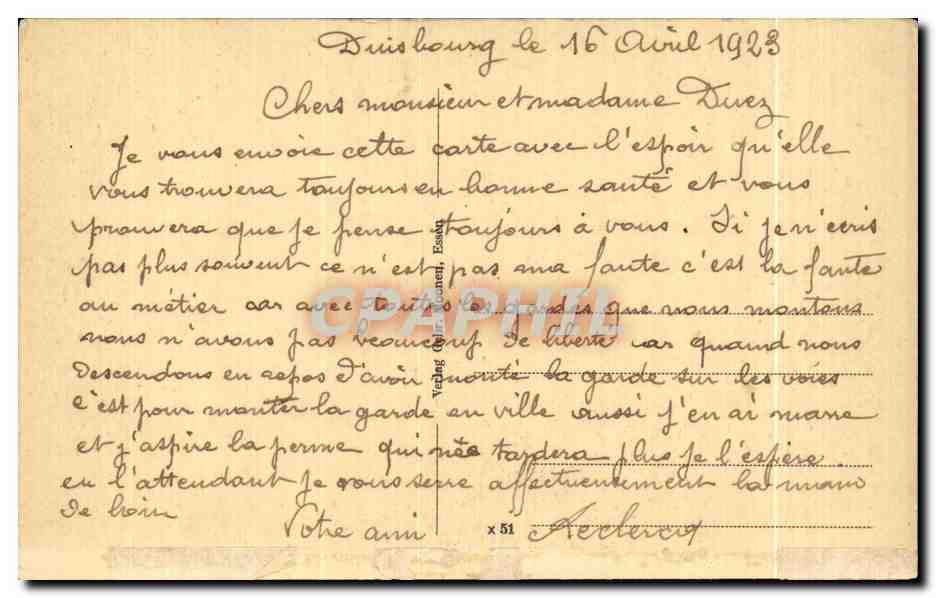 Duisbourg le 16 Avril 1923
Chers monsieur et madame Duez
Je vous envoie cette carte avec l'espoir qu'elle
vous trouvera toujours en bonne santé et vous
prouvera que je pense toujours à vous. Si je n'écris
pas plus souvent ce n'est pas ma faute c'est la faute
au métier car avec toutes les gardes que nous montons
nous n'avons pas beaucoup de liberté car quand nous
descendons en repos d'avoir monté la garde sur les voies
c'est pour monter la garde en ville aussi j'en ai marre
et j'aspire la perme qui ne tardera plus je l'espère.
en l'attendant je vous serre affectueusement la main
de loin
Votre ami
Verlag Gebr. Essen
x 51
CPAPHIL